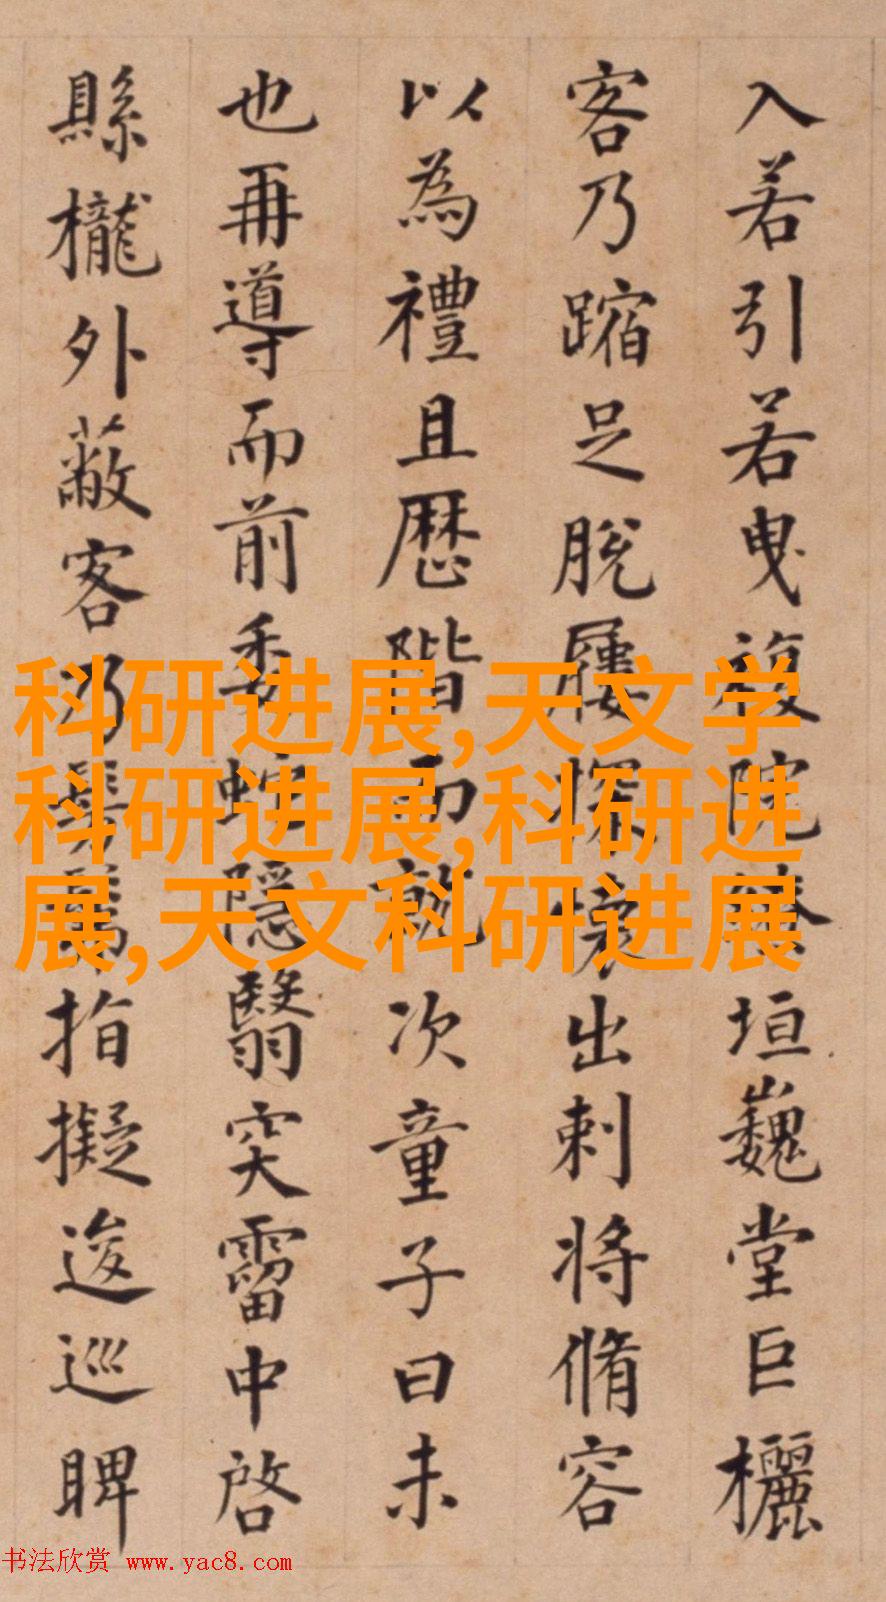 入若引若曳複院繚垣巍堂巨欐
客乃蹜足脫屨探懷出刺將脩容
以為禮且歷階而就次童子曰未
也再導而前委蛇隱翳穾霤中啓
縣櫳外蔽客乃指擬逡巡睥
科研进展,天文学
科研进展,科研进
展,天文科研进展
书法欣赏 www.yac8.com